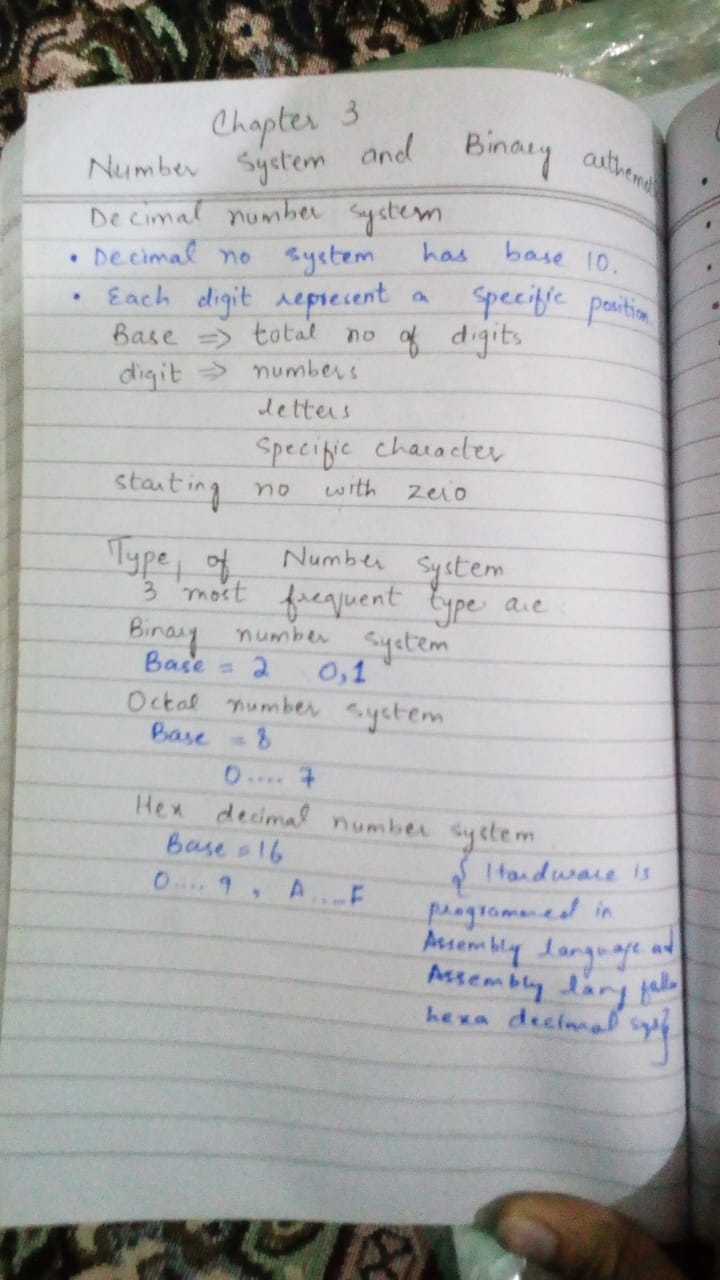 Chapter 3
Number System and Binary
Decimal number system
• Decimal no system has base 10.
• Each digit represent a specific position.
Base => total no of digits
digit => numbers
letters
specific character
starting no with zero
Type, of Number System
3 most frequent type are :
Binary number system
Base = 2 0,1
Octal number system
Base = 8
0.... 7
Hex decimal number system
Base = 16
0.... 9 , A....F
{ Hardware is
programmed in
Assembly language and
Assembly lang
hexa decimal